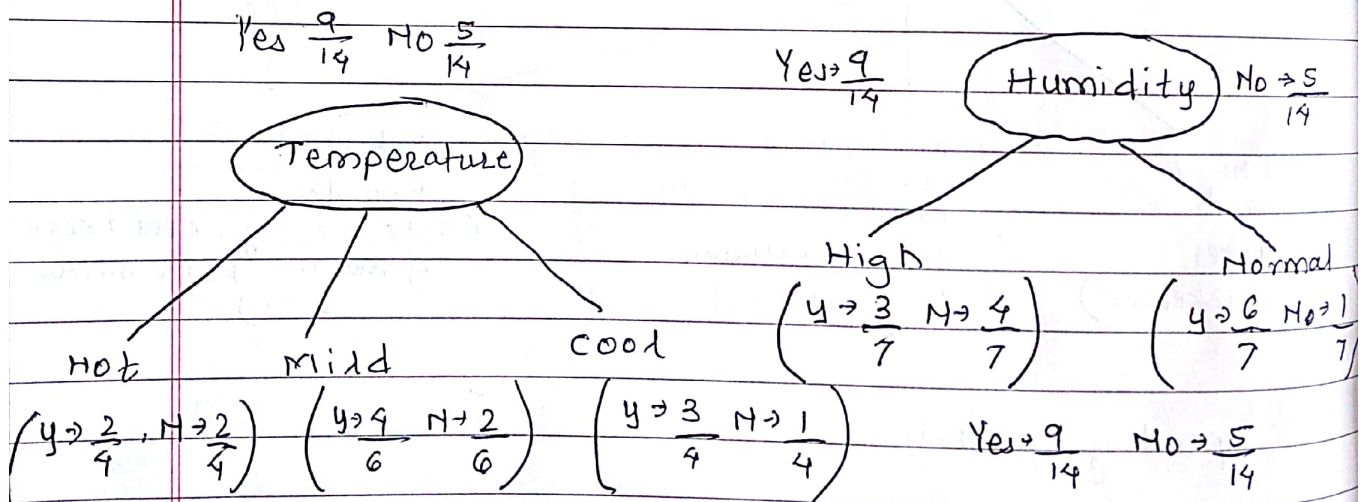 Yes 9/14 No 5/14
Temperature
Hot Mild Cool
(Y→2/4, N→2/4) (Y→4/6 N→2/6) (Y→3/4 N→1/4)
Yes→9/14 Humidity No→5/14
High Normal
(Y→3/7 N→4/7) (Y→6/7 No→1/7)
Yes→9/14 No→5/14